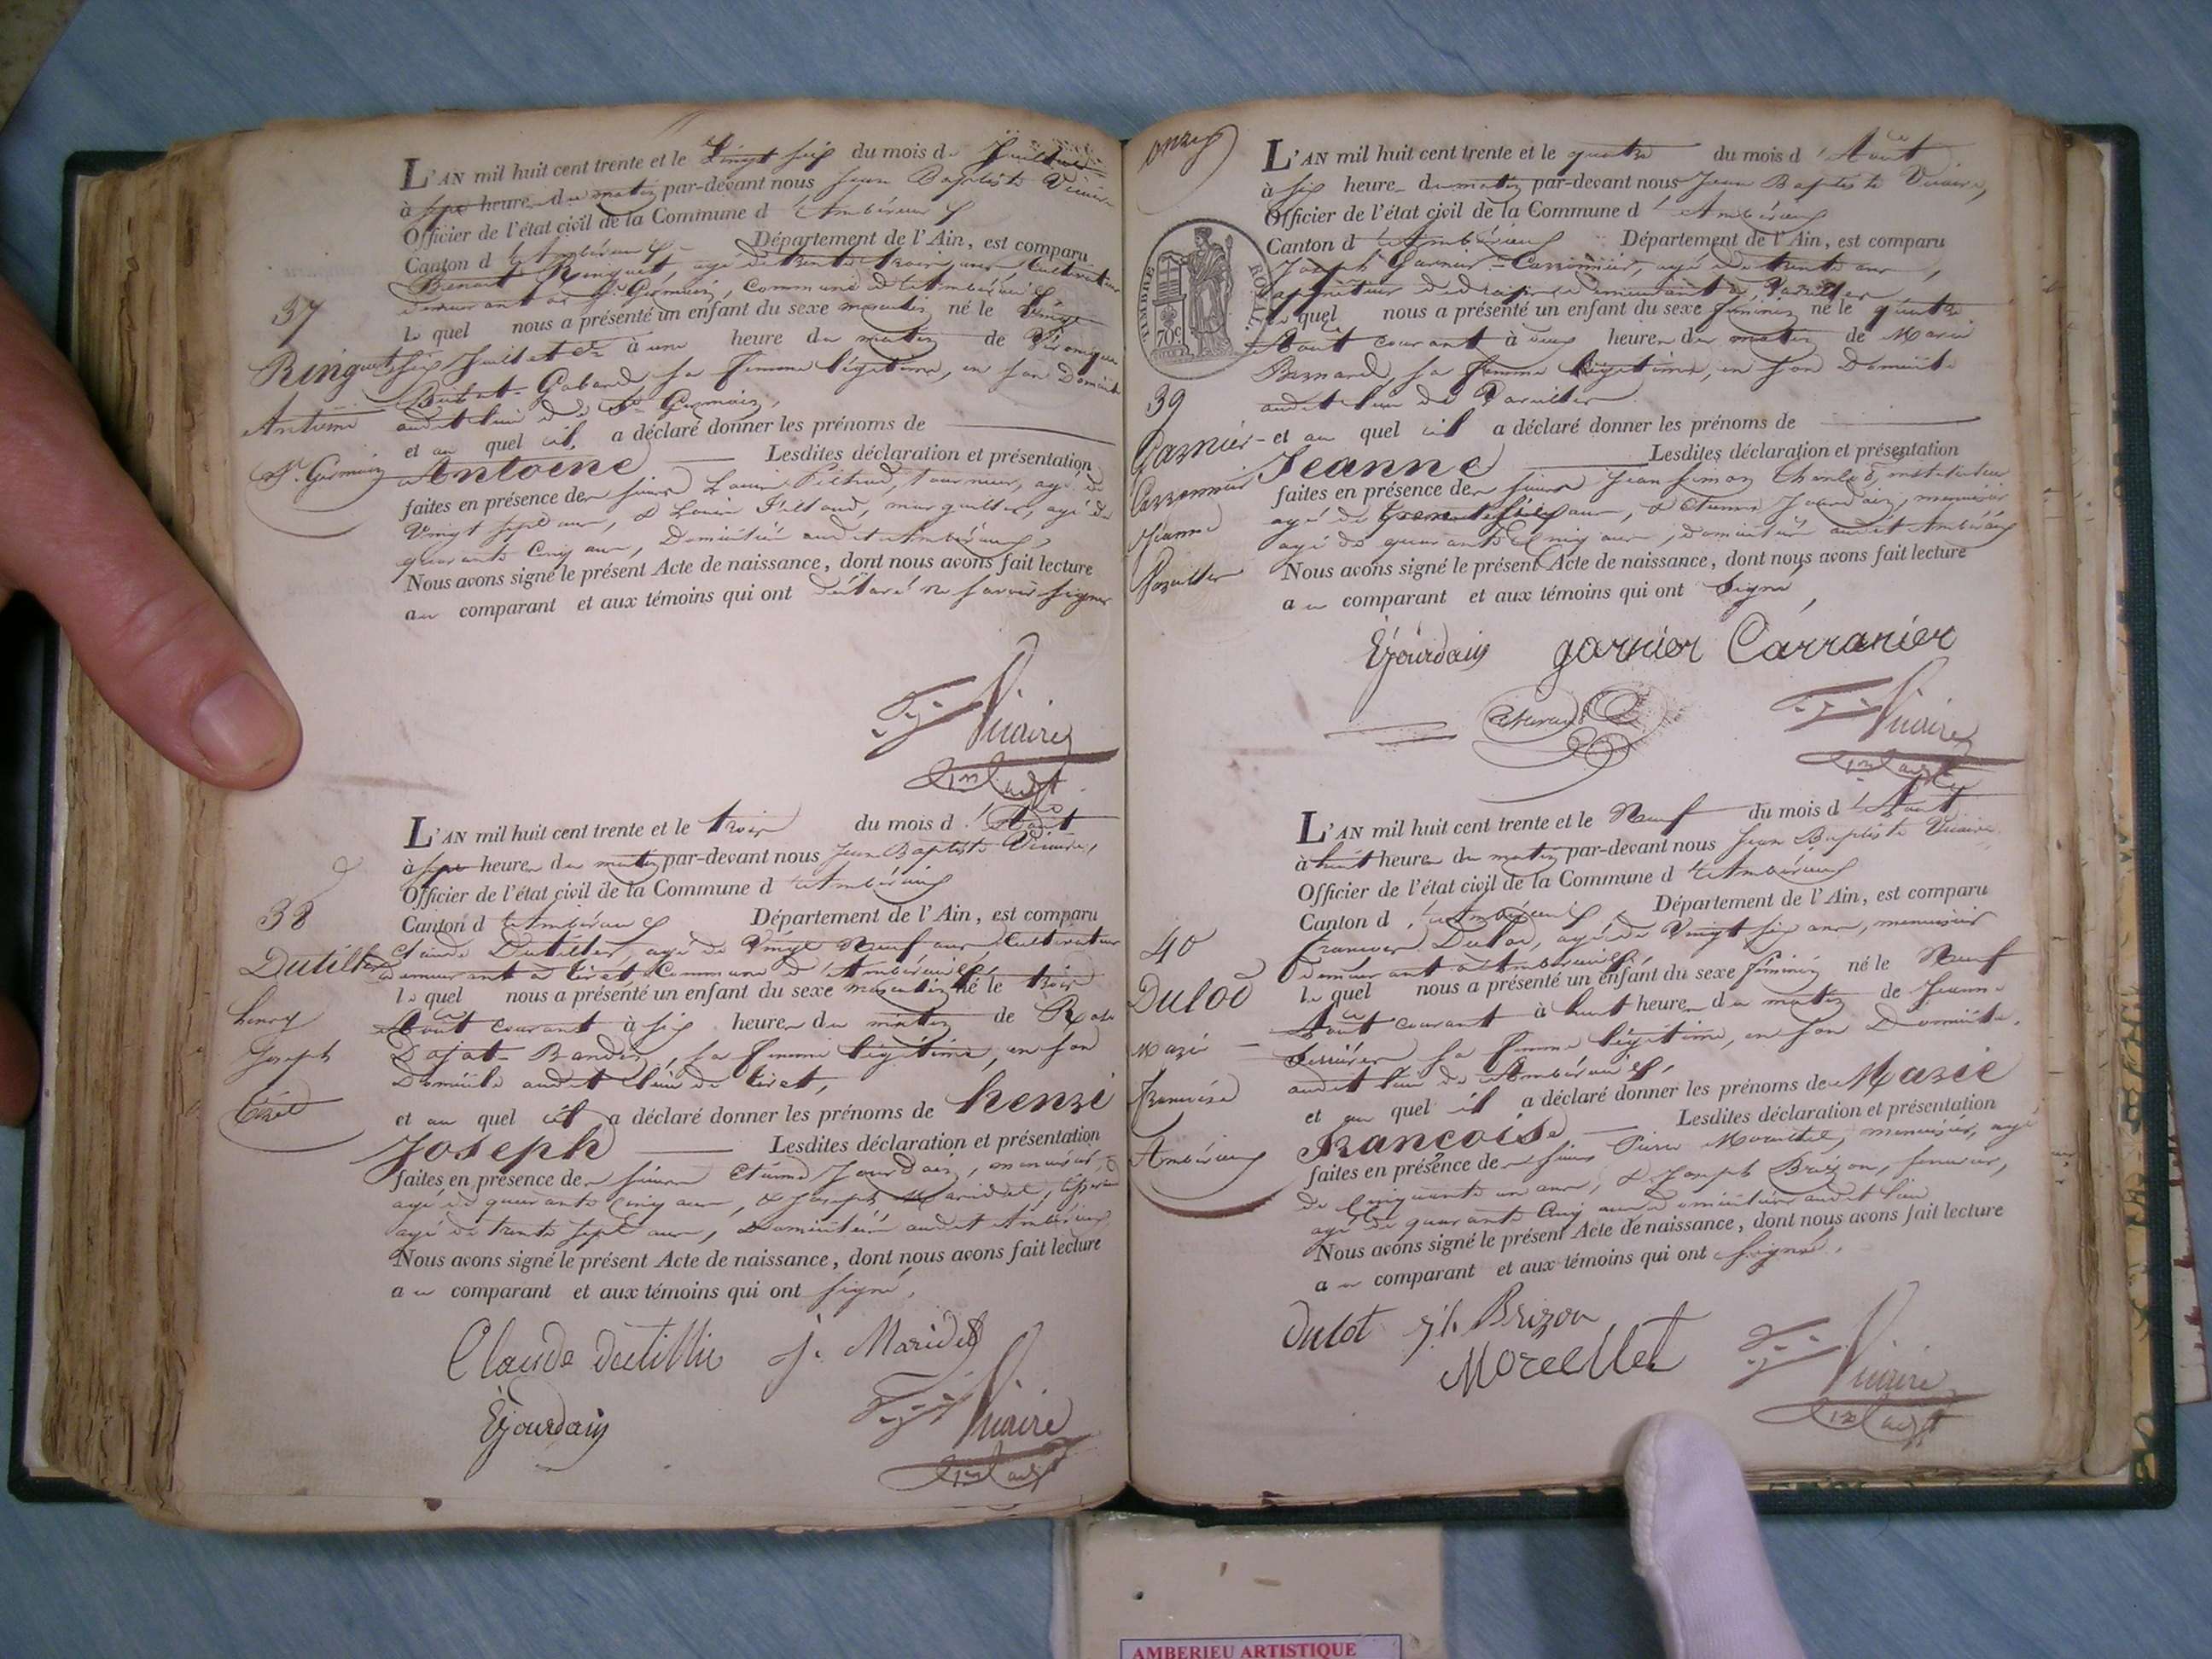 L'AN mil huit cent trente et le Vingt six du mois de Juillet
à sept heures du matin par-devant nous Jean Baptiste Vicaire
Officier de l'état civil de la Commune d'Ambérieux
Canton d'Ambérieux Département de l'Ain, est comparu
Benoit Ringuet, agé de trente trois ans, Cultivateur
demeurant à St. Germain, Commune d'Ambérieux
37
le quel nous a présenté un enfant du sexe masculin né le Vingt
Ringuet
six Juillet à une heure du matin de Véronique
Gabard, sa femme légitime, en son Domicile
Antoine
audit lieu de St. Germain,
et au quel il a déclaré donner les prénoms de
St. Germain
Antoine Lesdites déclaration et présentation
faites en présence des sieurs Louis agé de
Vingt sept ans, & Louis agé de
quarante Cinq ans, Domiciliés audit Ambérieux,
Nous avons signé le présent Acte de naissance, dont nous avons fait lecture
au comparant et aux témoins qui ont déclaré ne savoir signer
Vicaire
L'AN mil huit cent trente et le trois du mois d'Août
à sept heures du matin par-devant nous Jean Baptiste Vicaire,
Officier de l'état civil de la Commune d'Ambérieux
38
Canton d'Ambérieux Département de l'Ain, est comparu
Dutillier
Claude Dutillier, agé de Vingt Neuf ans, Cultivateur
demeurant à Tiret, Commune d'Ambérieux,
le quel nous a présenté un enfant du sexe masculin né le trois
henry
Août courant à six heures du matin de Rose
Joseph
Dojat-Bandin, sa femme légitime, en son
Domicile audit lieu de Tiret,
Tiret
et au quel il a déclaré donner les prénoms de henri
Joseph Lesdites déclaration et présentation
faites en présence des sieurs Etienne Jourdain, menuisier,
agé de quarante Cinq ans, & Joseph Maridet,
agé de trente sept ans, Domiciliés audit Ambérieux
Nous avons signé le présent Acte de naissance, dont nous avons fait lecture
au comparant et aux témoins qui ont signé,
Claude dutillier j. Maridet
EJourdain Vicaire
onze
L'AN mil huit cent trente et le quatre du mois d'Août
à six heures du matin par-devant nous Jean Baptiste Vicaire,
Officier de l'état civil de la Commune d'Ambérieux
Canton d'Ambérieux Département de l'Ain, est comparu
TIMBRE ROYAL
70c
Joseph Garnier-Carronnier, agé de trente ans,
demeurant à Vareilles
le quel nous a présenté un enfant du sexe féminin né le quatre
Août courant à heures du matin de Marie
Bernard, sa femme légitime, en son Domicile
39
audit lieu de Vareilles
Garnier-
et au quel il a déclaré donner les prénoms de
Carronnier
Jeanne Lesdites déclaration et présentation
faites en présence des sieurs Jean Simon instituteur
Jeanne
agé de ans, & Etienne Jourdain, menuisier
agé de quarante Cinq ans, domiciliés audit Ambérieux
Vareilles
Nous avons signé le présent Acte de naissance, dont nous avons fait lecture
au comparant et aux témoins qui ont signé,
EJourdain garnier Carranier
Vicaire
L'AN mil huit cent trente et le Neuf du mois d'Août
à huit heures du matin par-devant nous Jean Baptiste Vicaire
Officier de l'état civil de la Commune d'Ambérieux
Canton d'Ambérieux, Département de l'Ain, est comparu
40
François Dulot, agé de Vingt six ans, menuisier
demeurant à Ambérieux,
Dulot
le quel nous a présenté un enfant du sexe féminin né le Neuf
Août courant à huit heures du matin de Jeanne
Marie
sa femme légitime, en son Domicile,
audit lieu de Ambérieux,
Francoise
et au quel il a déclaré donner les prénoms de Marie
Francoise Lesdites déclaration et présentation
Ambérieux
faites en présence des sieurs Pierre Morellet, menuisier, agé
de Cinquante un ans, & Joseph Brizon,
agé de quarante Cinq ans domiciliés audit lieu
Nous avons signé le présent Acte de naissance, dont nous avons fait lecture
au comparant et aux témoins qui ont signé.
Dulot jh. Brizon
Morellet Vicaire
AMBERIEU ARTISTIQUE